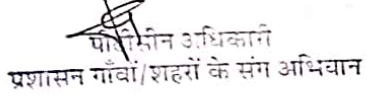 पीठासीन अधिकारी
प्रशासन गाँवों/शहरों के संग अभियान